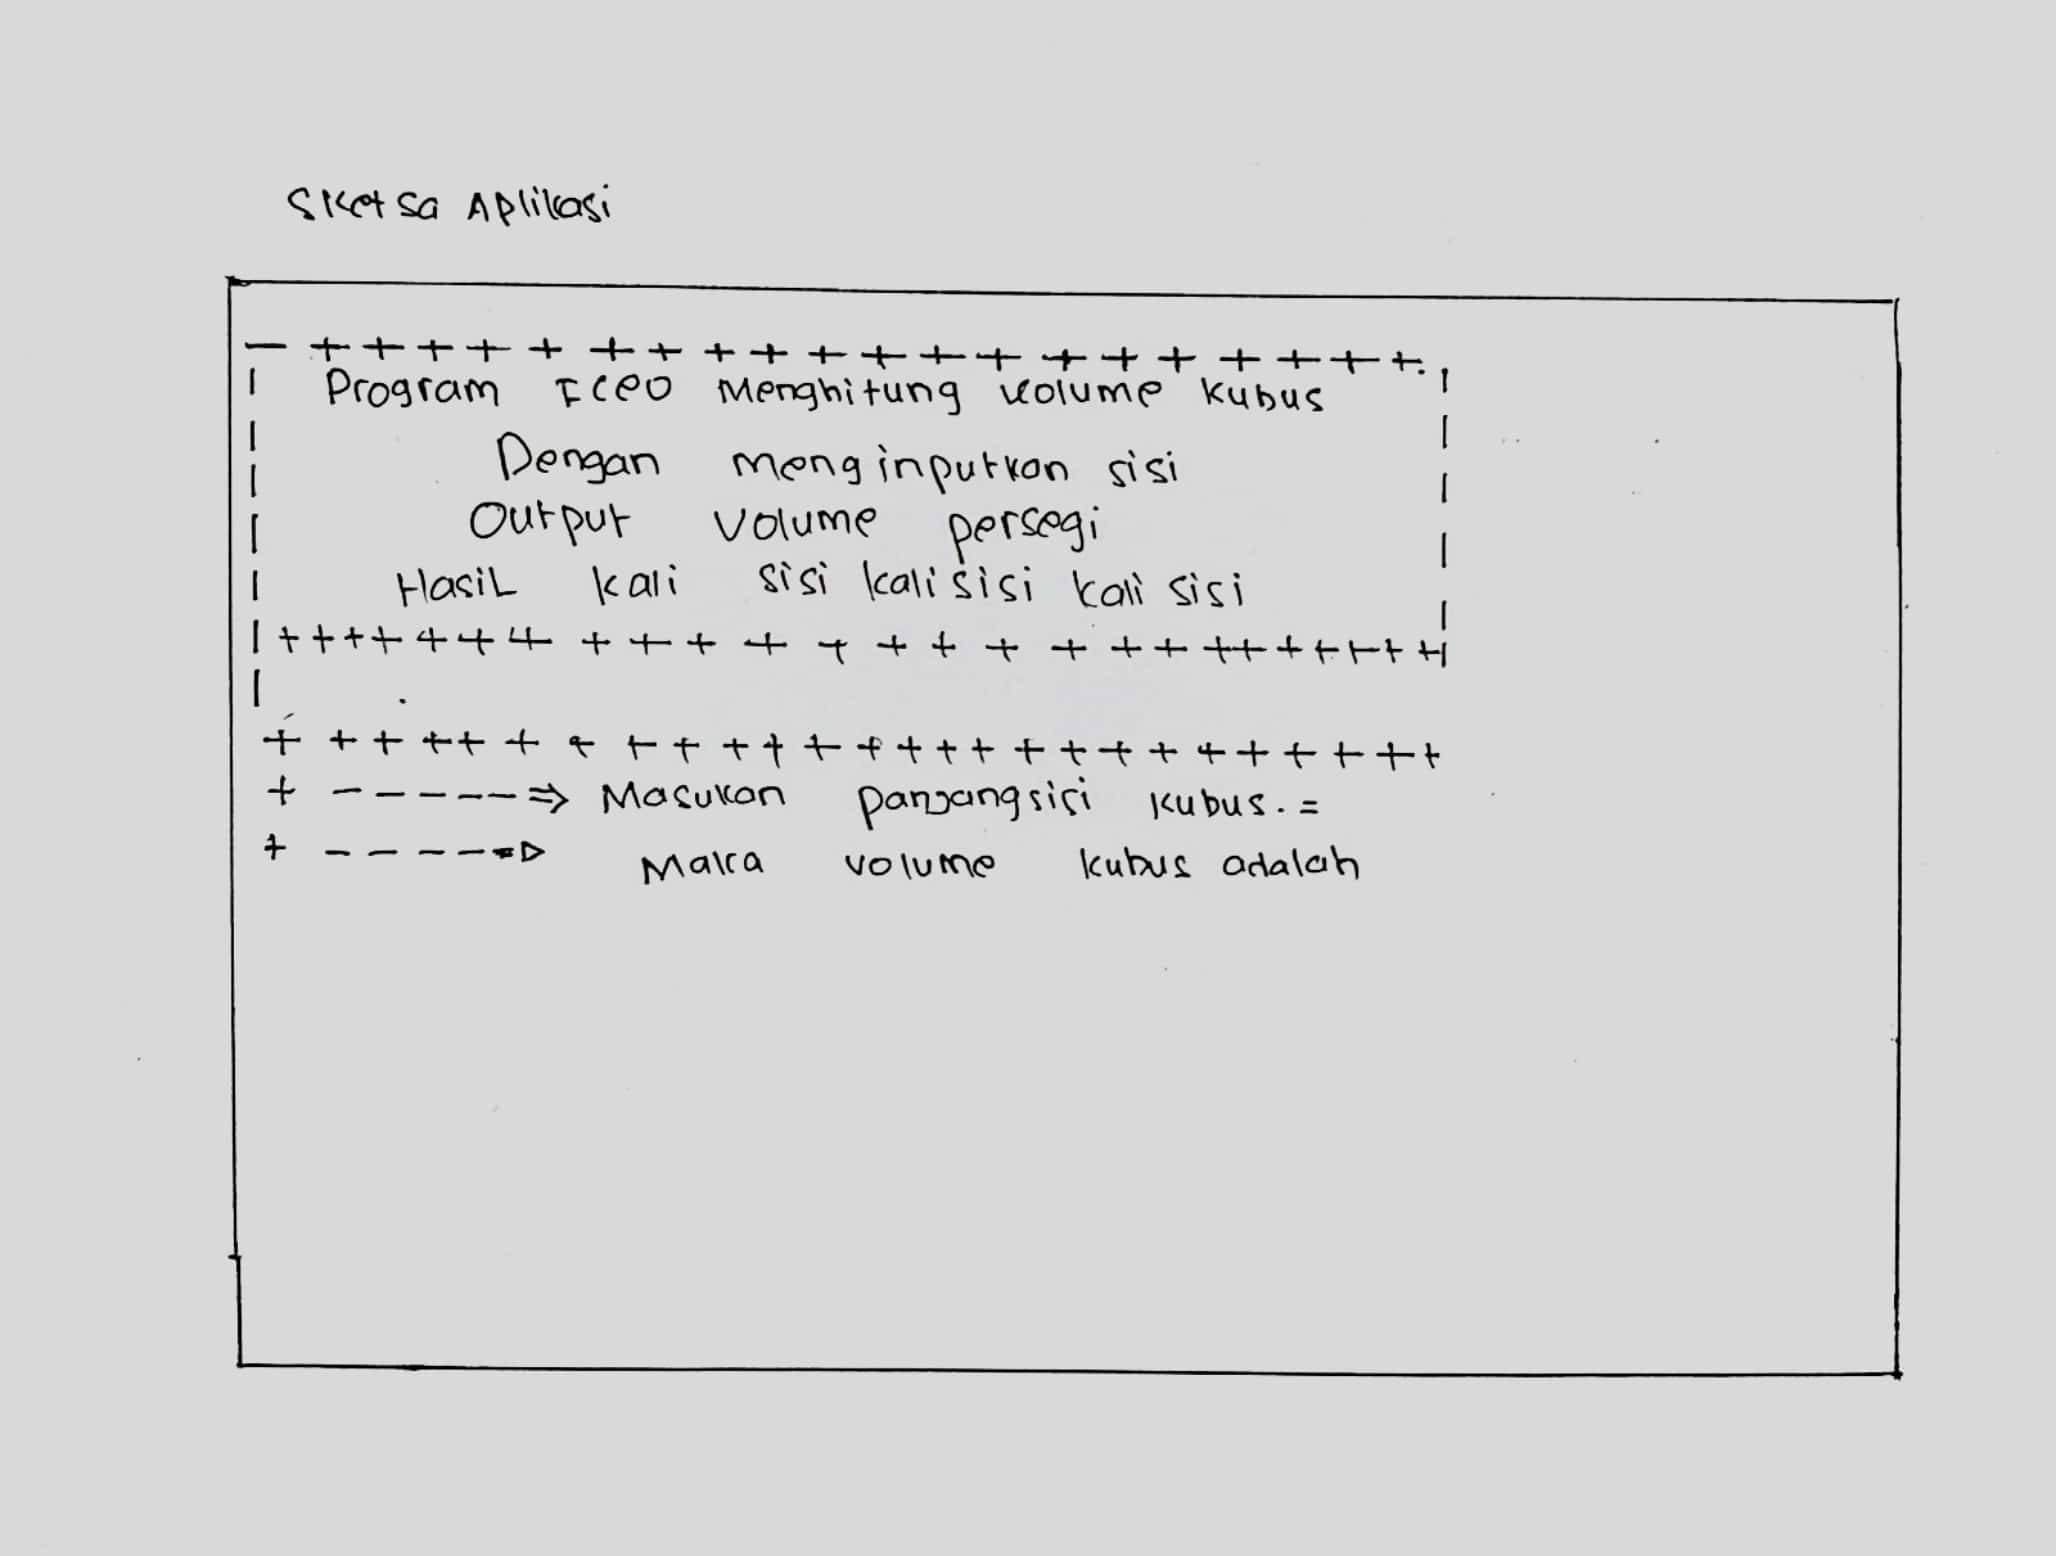 Sketsa Aplikasi
- + + + + + + + + + + + + + + + + + + + +
| Program Menghitung Volume Kubus |
| Dengan menginputkan sisi |
| Output Volume persegi |
| Hasil kali sisi kali sisi kali sisi |
| + + + + + + + + + + + + + + + + + + + + + + + + + |
|
+ + + + + + + + + + + + + + + + + + + + + + + + + + +
+ -----=> Masukan panjang sisi kubus. =
+ -----=> Maka volume kubus adalah